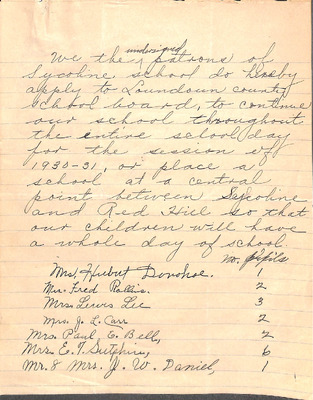 undersigned
We the patrons of
Sycoline school do hereby
apply to Loundoun county
school board, to continue
our school throughout
the entire school day
for the session of
1930-31, or place a
school at a central
point between Sycoline
and Red Hill so that
our children will have
a whole day of school.
no. pupils
Mrs. Hubert Donohoe. 1
Mrs. Fred 2
Mrs. Lewis Lee 3
Mrs. J. L. Carr 2
Mrs. Paul E. Bell, 2
Mrs. E. T. Sutphin, 6
Mr. & Mrs. J. W. Daniel, 1